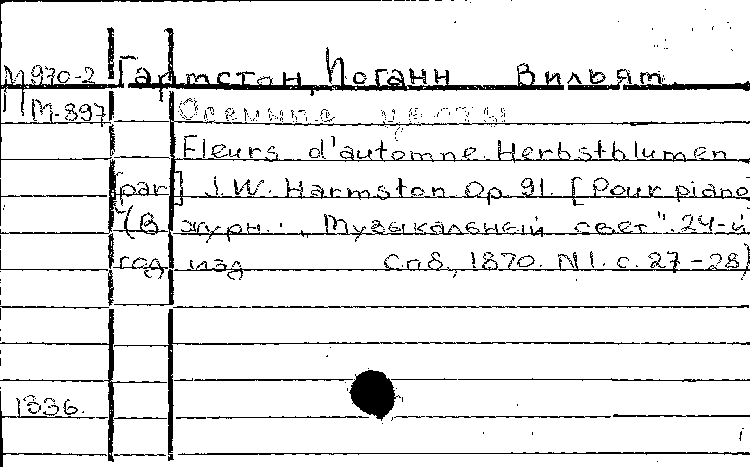 М970-2 Гармстон, Иоганн Вильям.
М-897 Осенние цветы
Fleurs d'automne. Herbstblumen
[par] J. W. Harmston Op. 91. [Pour piano
(В журн.: „Музыкальный свет". 24-й
год изд Спб., 1870. N 1. с. 27-28)
1336.